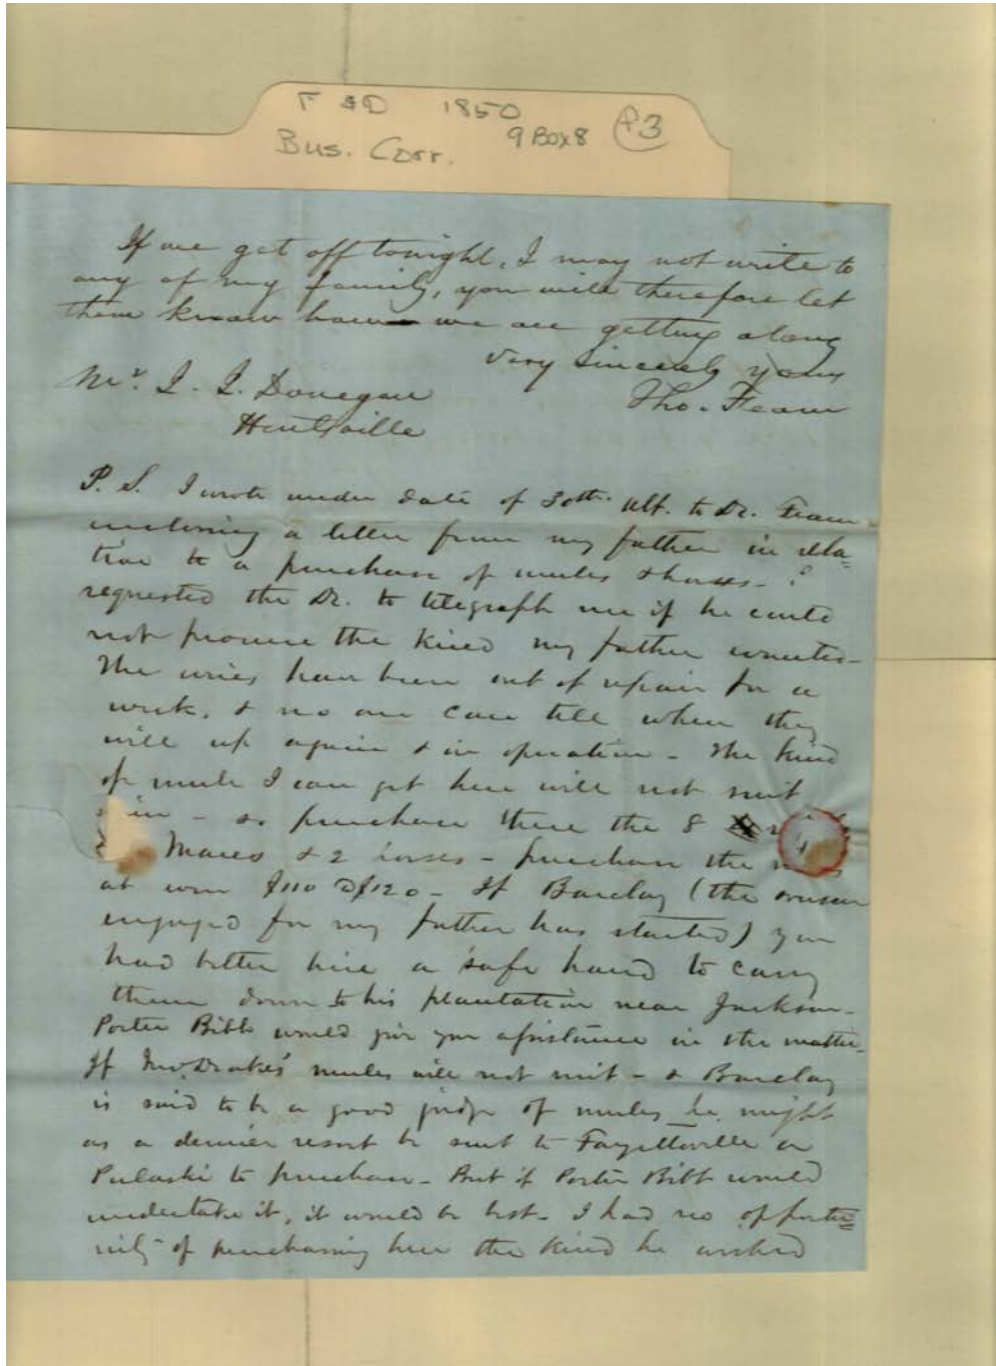 F & D 1850
9 Box 8 P3
Bus. Corr.
If we get off tonight, I may not write to
any of my family, you will therefore let
them know how we are getting along
Very sincerely yours
Tho. Fearn
Mr. J. J. Donegan
Huntsville
P. S. I wrote under date of 30th. ult. to Dr. Fearn
inclosing a letter from my father in rela=
tion to a purchase of mules & horses - I
requested the Dr. to telegraph me if he could
not procure the kind my father wanted -
The wires have been out of repair for a
week, & no one can tell when they
will up again & in operation - The kind
of mule I can get here will not suit
him - so purchase there the 8
Mares & 2 horses - purchase the
at $110 @ $120 - If Barclay (the
engaged for my father has started) you
had better hire a safe hand to carry
them down to his plantation near Jackson -
Porter Bibb would give you assistance in the matter -
If Drakes' mules will not suit - & Barclay
is said to be a good judge of mules he might
as a dernier resort be sent to Fayetteville or
Pulaski to purchase - But if Porter Bibb would
undertake it, it would be best - I had no opportu=
nity of purchasing here the kind he wished